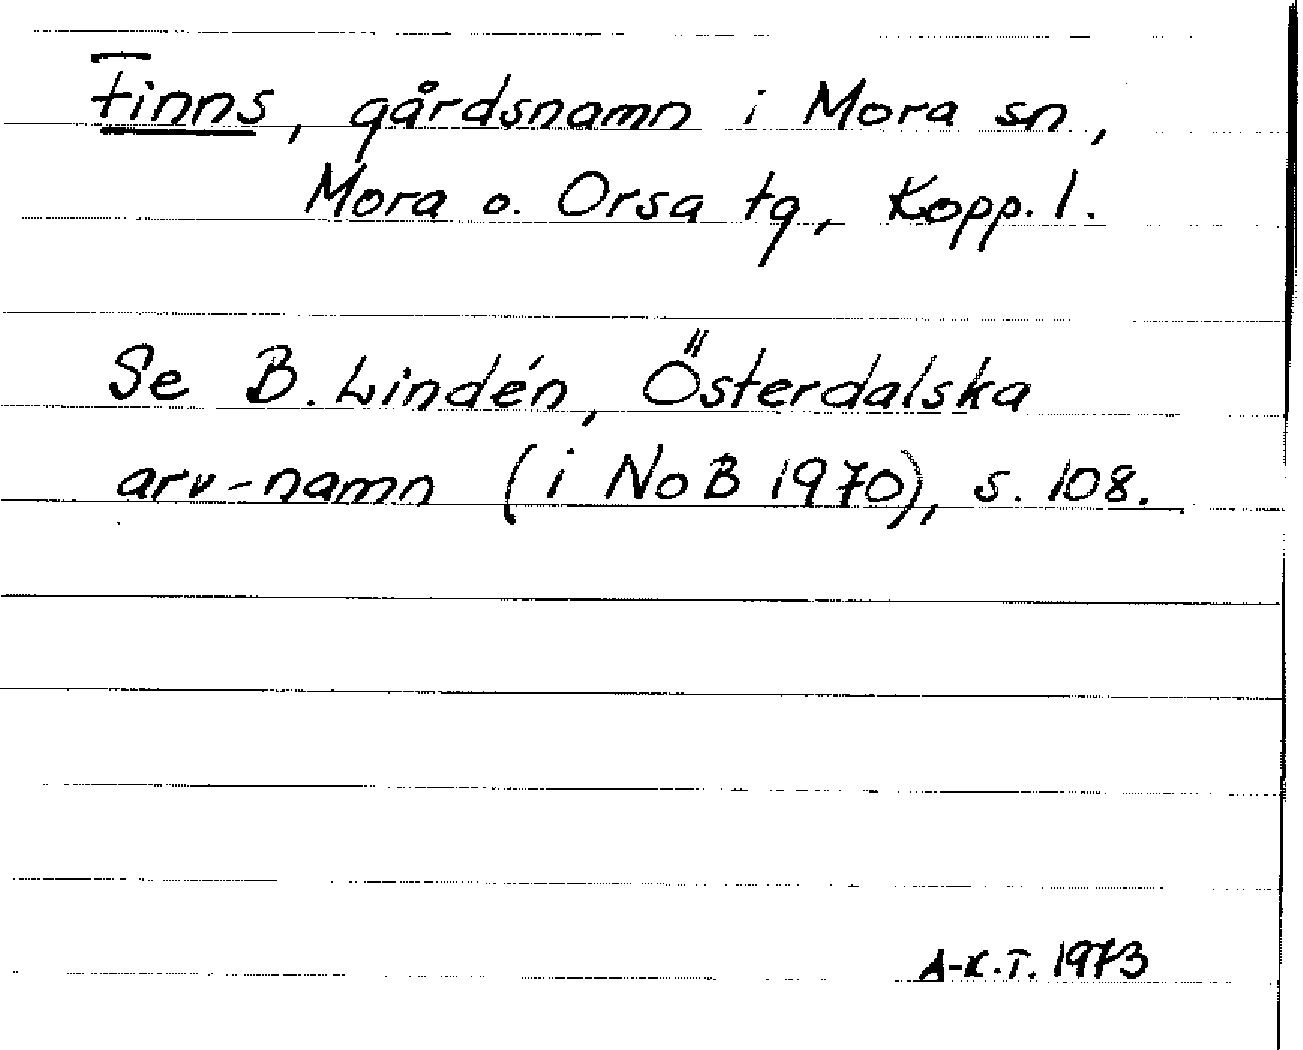 Finns, gårdsnamn i Mora sn,
Mora o. Orsa tg, Kopp. l.
Se B. Lindén, Österdalska
arv-namn (i NoB 1970), s. 108.
A-K.T. 1973